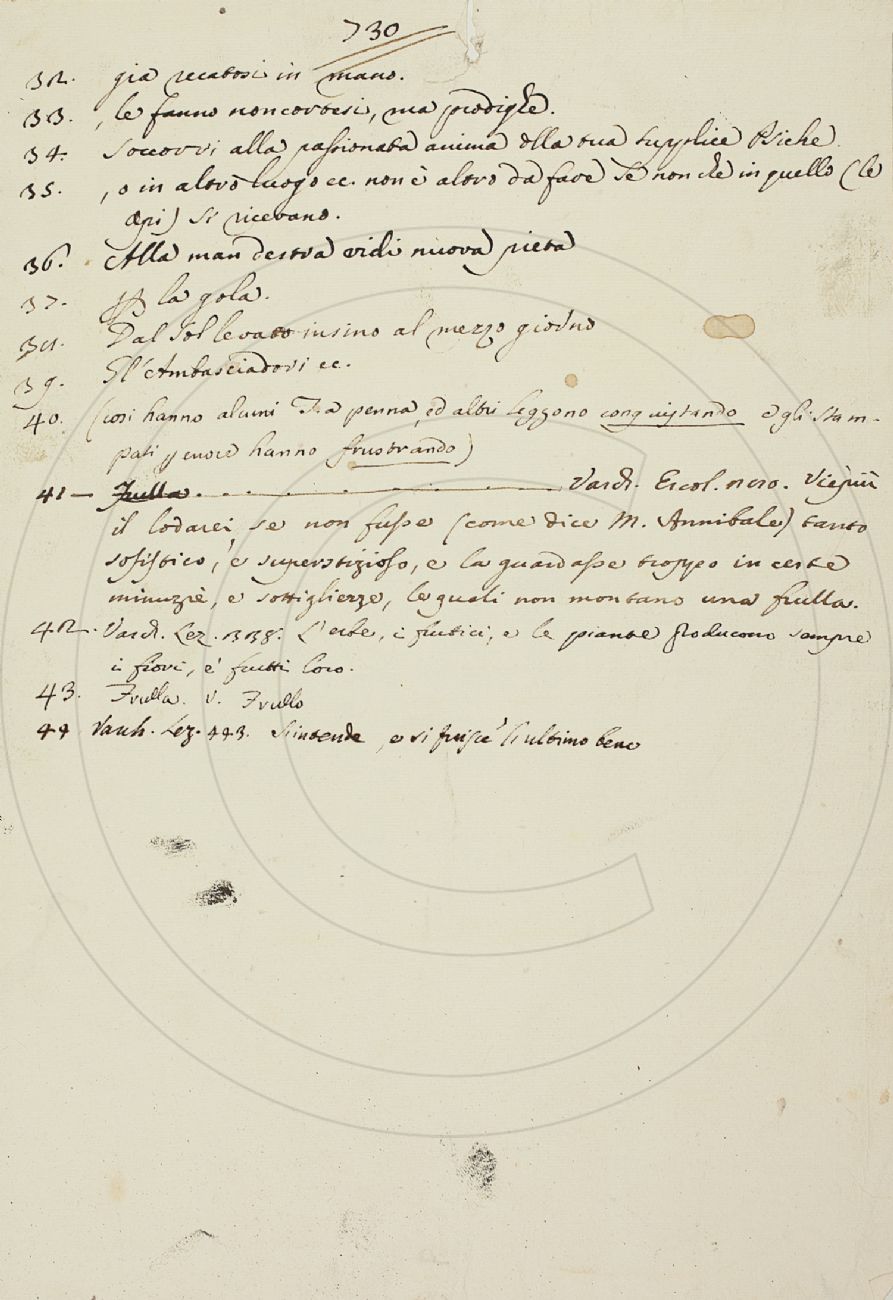 730
32. già recatosi in mano.
33. , le fanno non cortesi, ma prodighe.
34. Soccorri alla passionata anima della tua supplice Psiche
35. , o in altro luogo ec. non è altro da fare se non che in quello (le
Api) si ricevano.
36. Alla man destra vidi nuova pieta
37. la gola.
38. Dal Sol levato insino al mezzo giorno
39. Gl'Ambasciadori ec.
40. (così hanno alcuni T. a penna, ed altri leggono conquistando e gli stam-
pati hanno frustrando)
41 — Frulla. Varch. Ercol. Viepiù
il lodarei, se non fusse (come dice M. Annibale) tanto
sofistico, e superstizioso, e la guardasse troppo in certe
minuzie, e sottigliezze, le quali non montano una frulla.
42. Varch. Lez. 338. L'erbe, i frutici, e le piante producono sempre
i fiori, e frutti loro.
43. Frulla. v. Frullo
44 Varch. Lez. 443. S'intende, e si fruisce l'ultimo bene